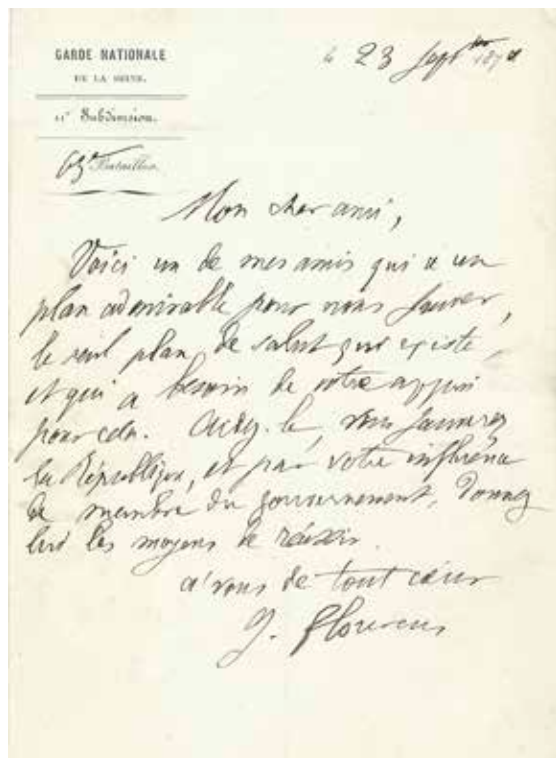 GARDE NATIONALE
DE LA SEINE.
11e Subdivision.
63e Bataillon.
le 23 Septbre 1870
Mon cher ami,
Voici un de mes amis qui a un
plan admirable pour nous sauver,
le seul plan de salut qui existe,
et qui a besoin de votre appui
pour cela. Aidez-le, vous sauverez
la République, et par votre influence
de membre du gouvernement, donnez
lui les moyens de réussir.
à vous de tout cœur
G. Flourens